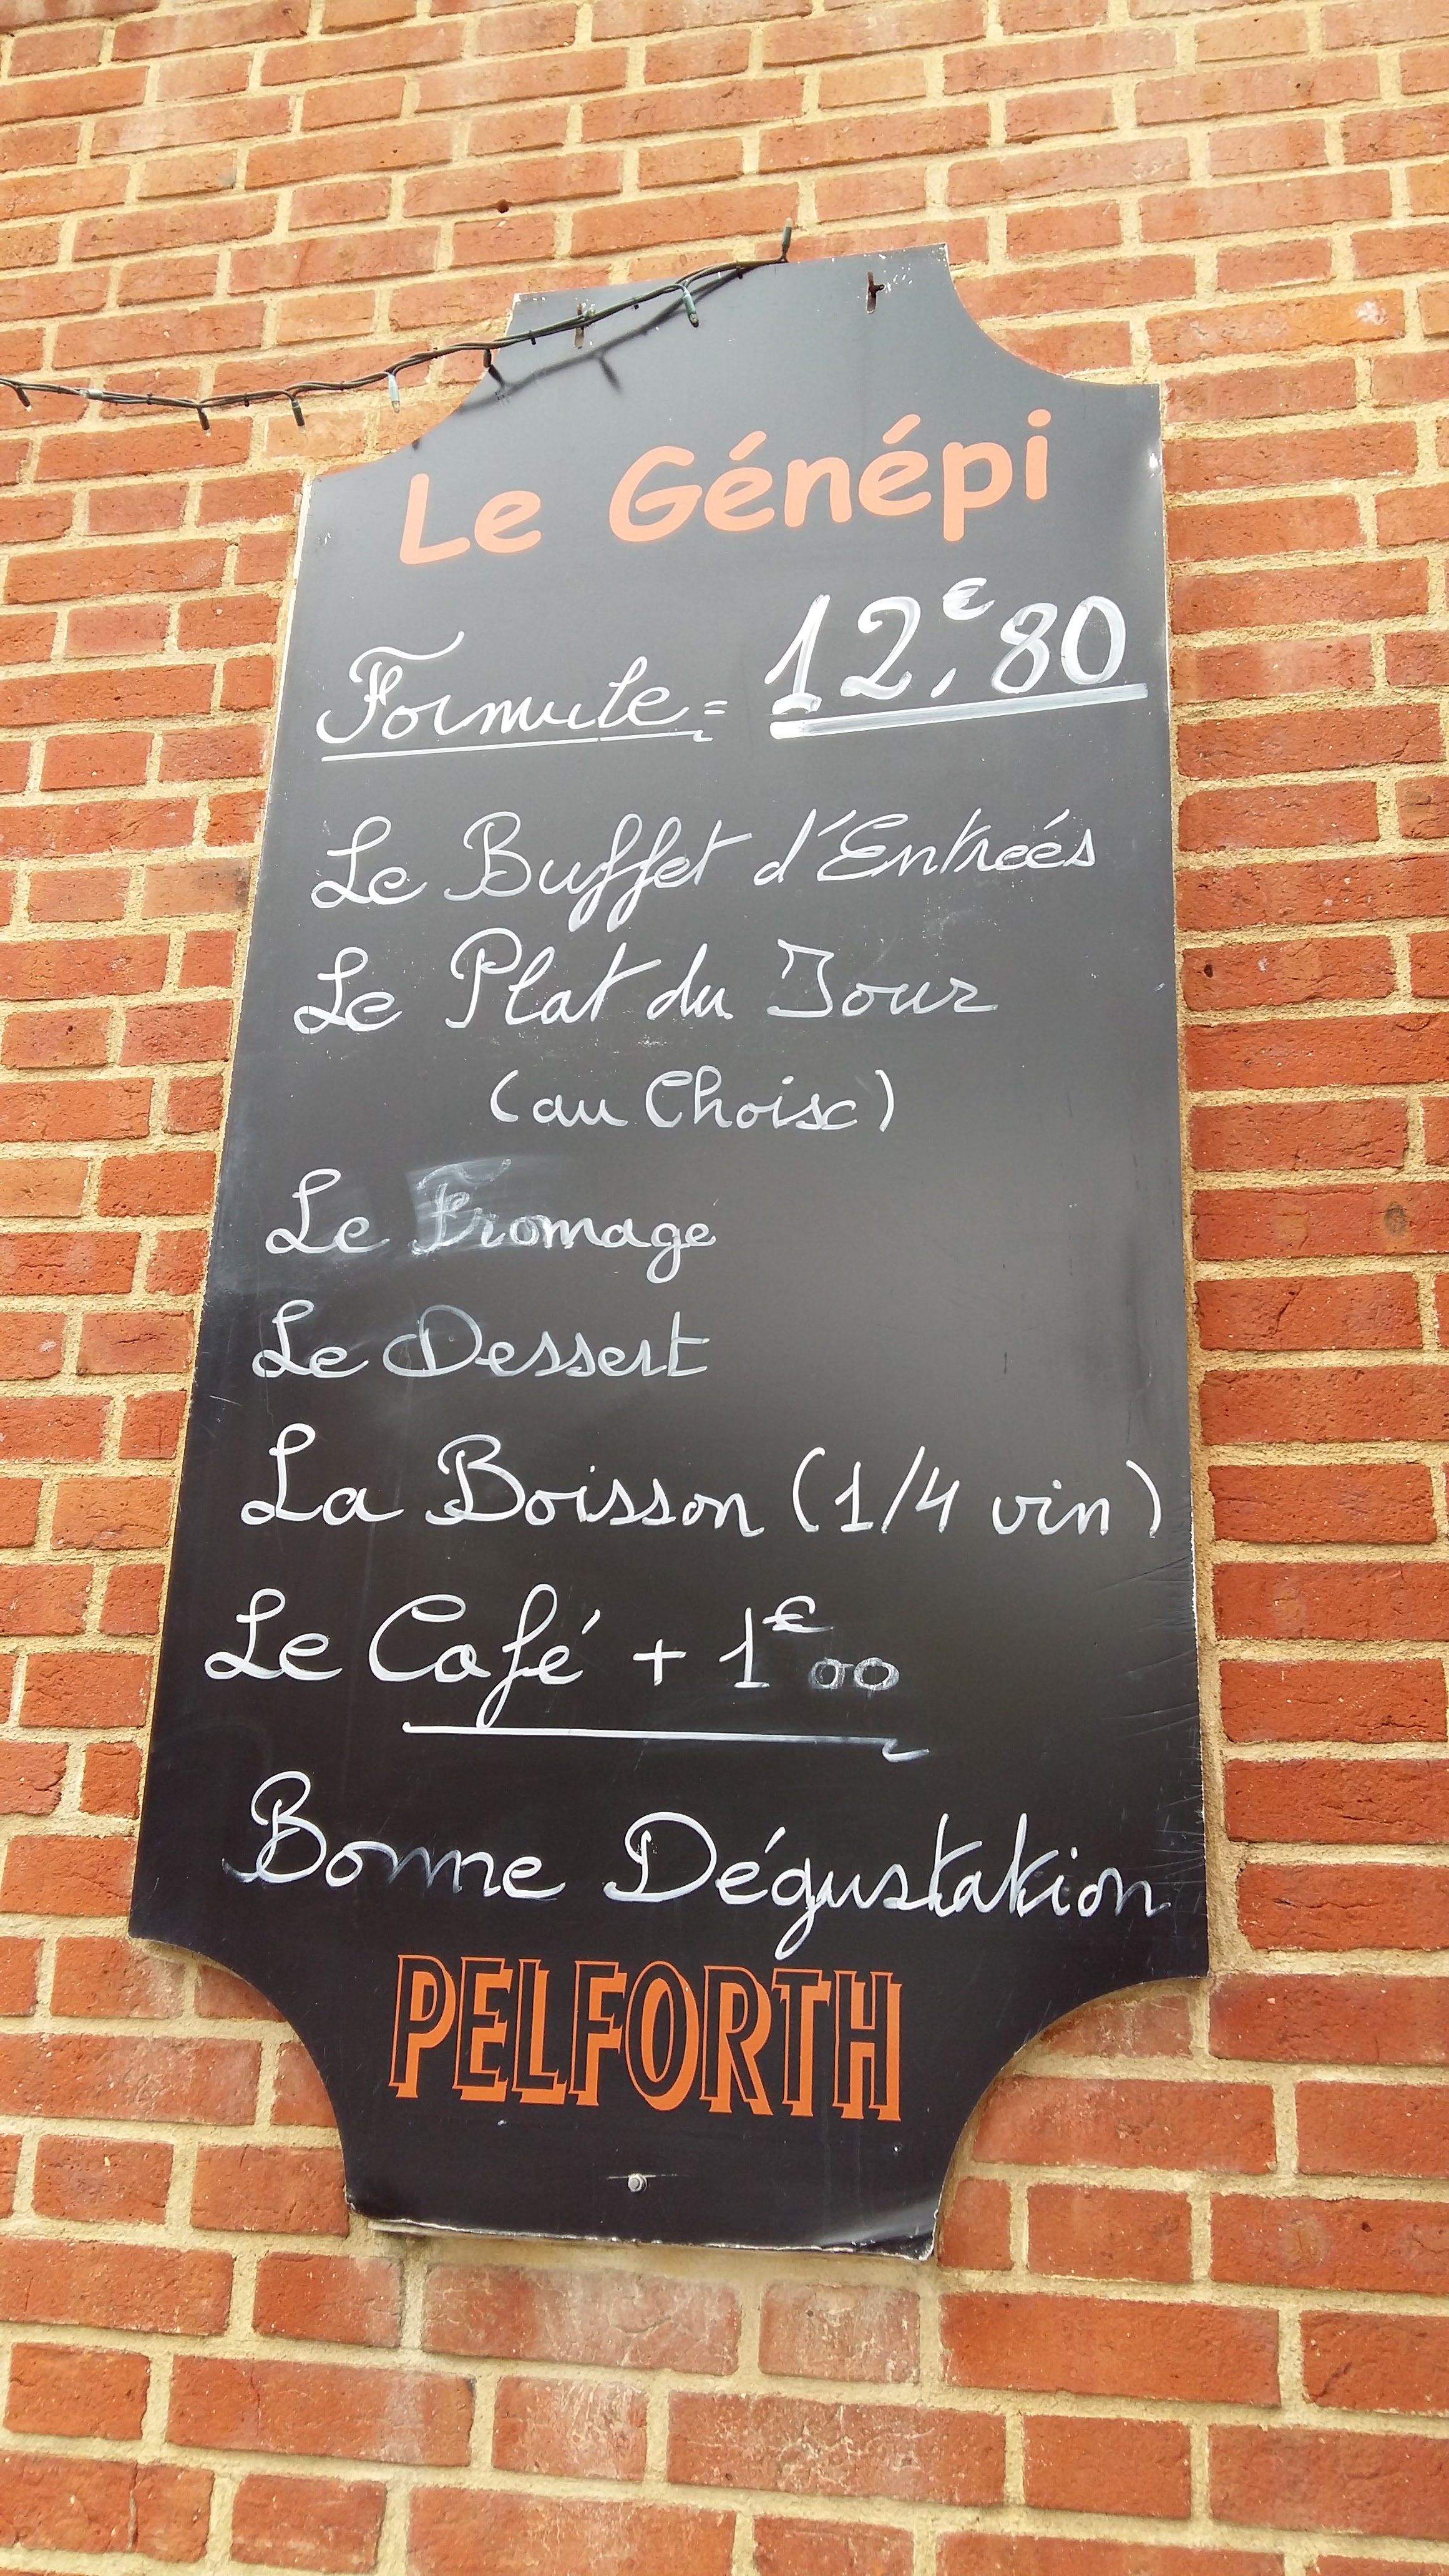 Le Génépi
Formule = 12,€80
Le Buffet d'Entreés
Le Plat du Jour
(au Choix)
Le Fromage
Le Dessert
La Boisson (1/4 vin)
Le Café + 1€00
Bonne Dégustation
PELFORTH